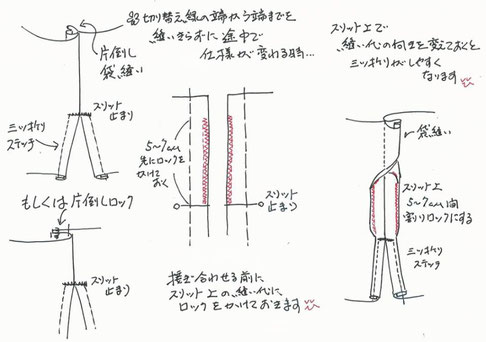 ※切り替え線の端から端までを
縫いきらずに途中で
仕様が変わる時…
片倒し
袋縫い
スリット
止まり
三ツ折り
ステッチ
もしくは片倒しロック
スリット
止まり
5~7cm
先にロックを
かけて
おく
スリット
止まり
接ぎ合わせる前に
スリット上の縫い代に
ロックをかけておきます
スリット上で
縫い代の向きを変えておくと
三ツ折りがしやすく
なります
袋縫い
スリット上
5~7cm間
割りロックにする
三ツ折り
ステッチ